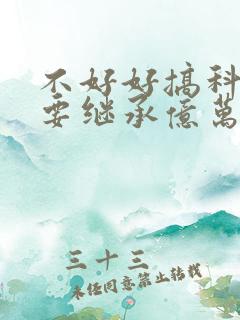 不好好搞科
要继承億萬
三十三
未经同意禁止转载